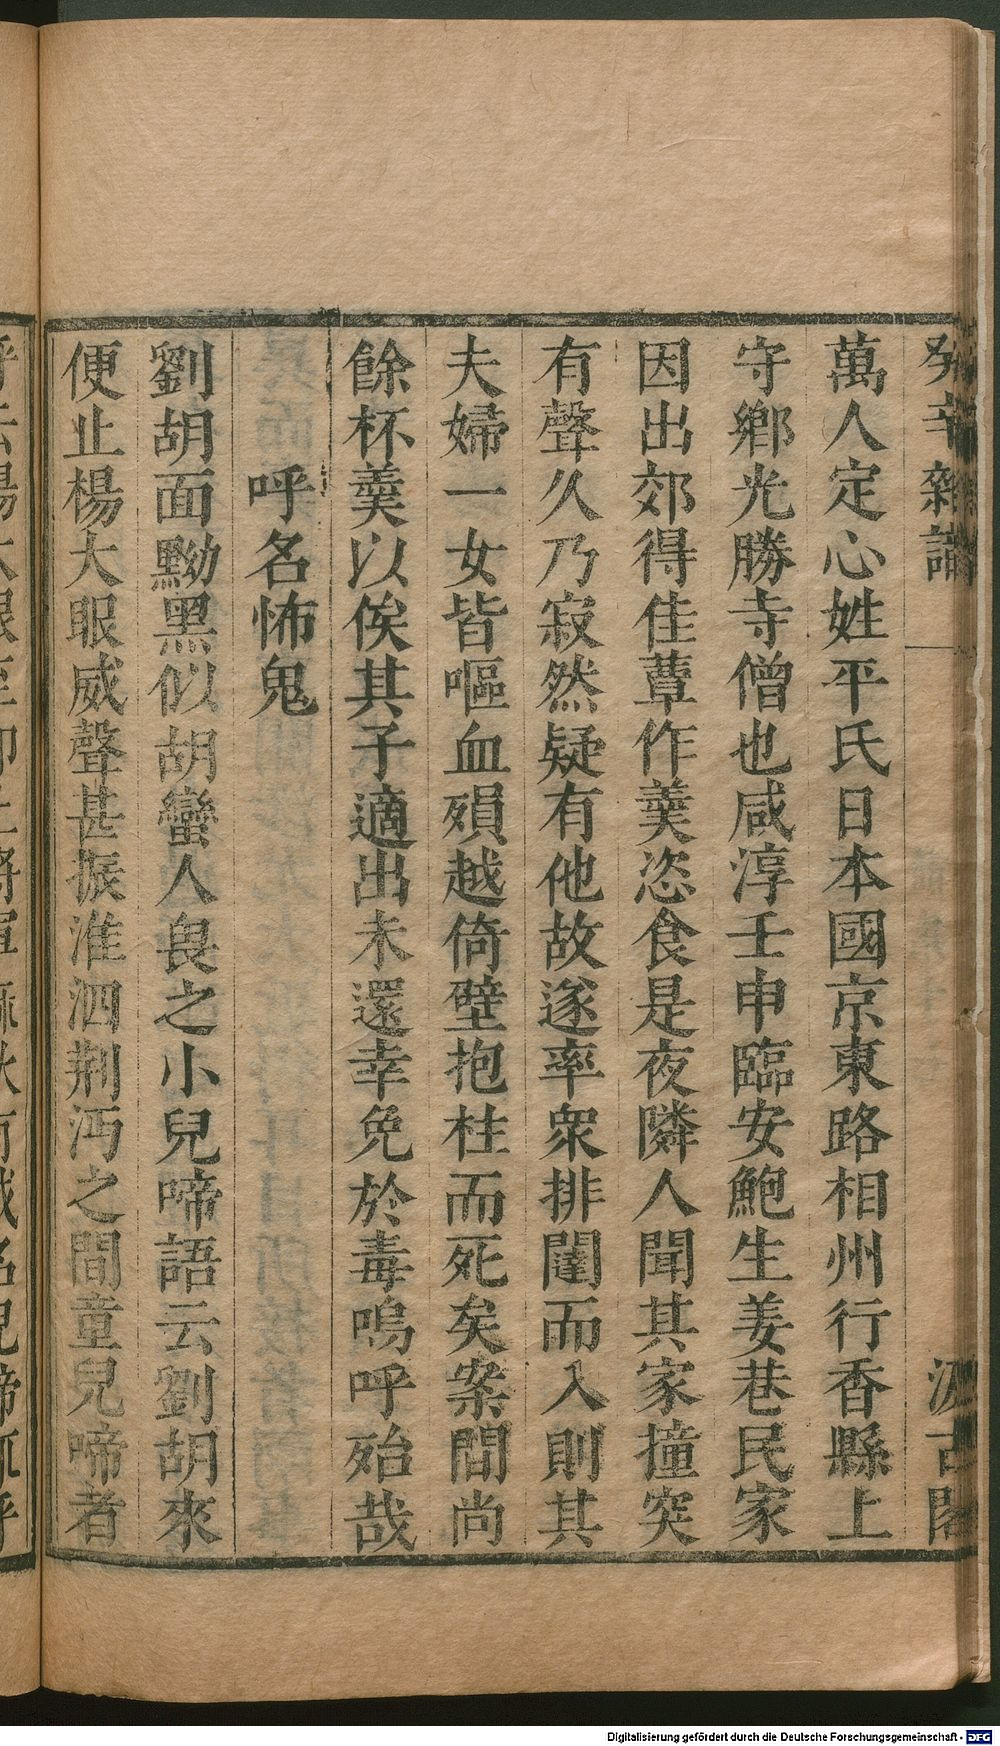 癸辛雜識
汲古閣
萬人定心姓平氏日本國京東路相州行香縣上
守鄉光勝寺僧也咸淳壬申臨安鮑生姜巷民家
因出郊得佳蕈作羹恣食是夜隣人聞其家撞突
有聲久乃寂然疑有他故遂率衆排闥而入則其
夫婦一女皆嘔血殞越倚壁抱柱而死矣案間尚
餘杯羹以俟其子適出未還幸免於毒嗚呼殆哉
呼名怖鬼
劉胡面黝黑似胡蠻人畏之小兒啼語云劉胡來
便止楊大眼威聲甚振淮泗荆沔之間童兒啼者
Digitalisierung gefördert durch die Deutsche Forschungsgemeinschaft - DFG